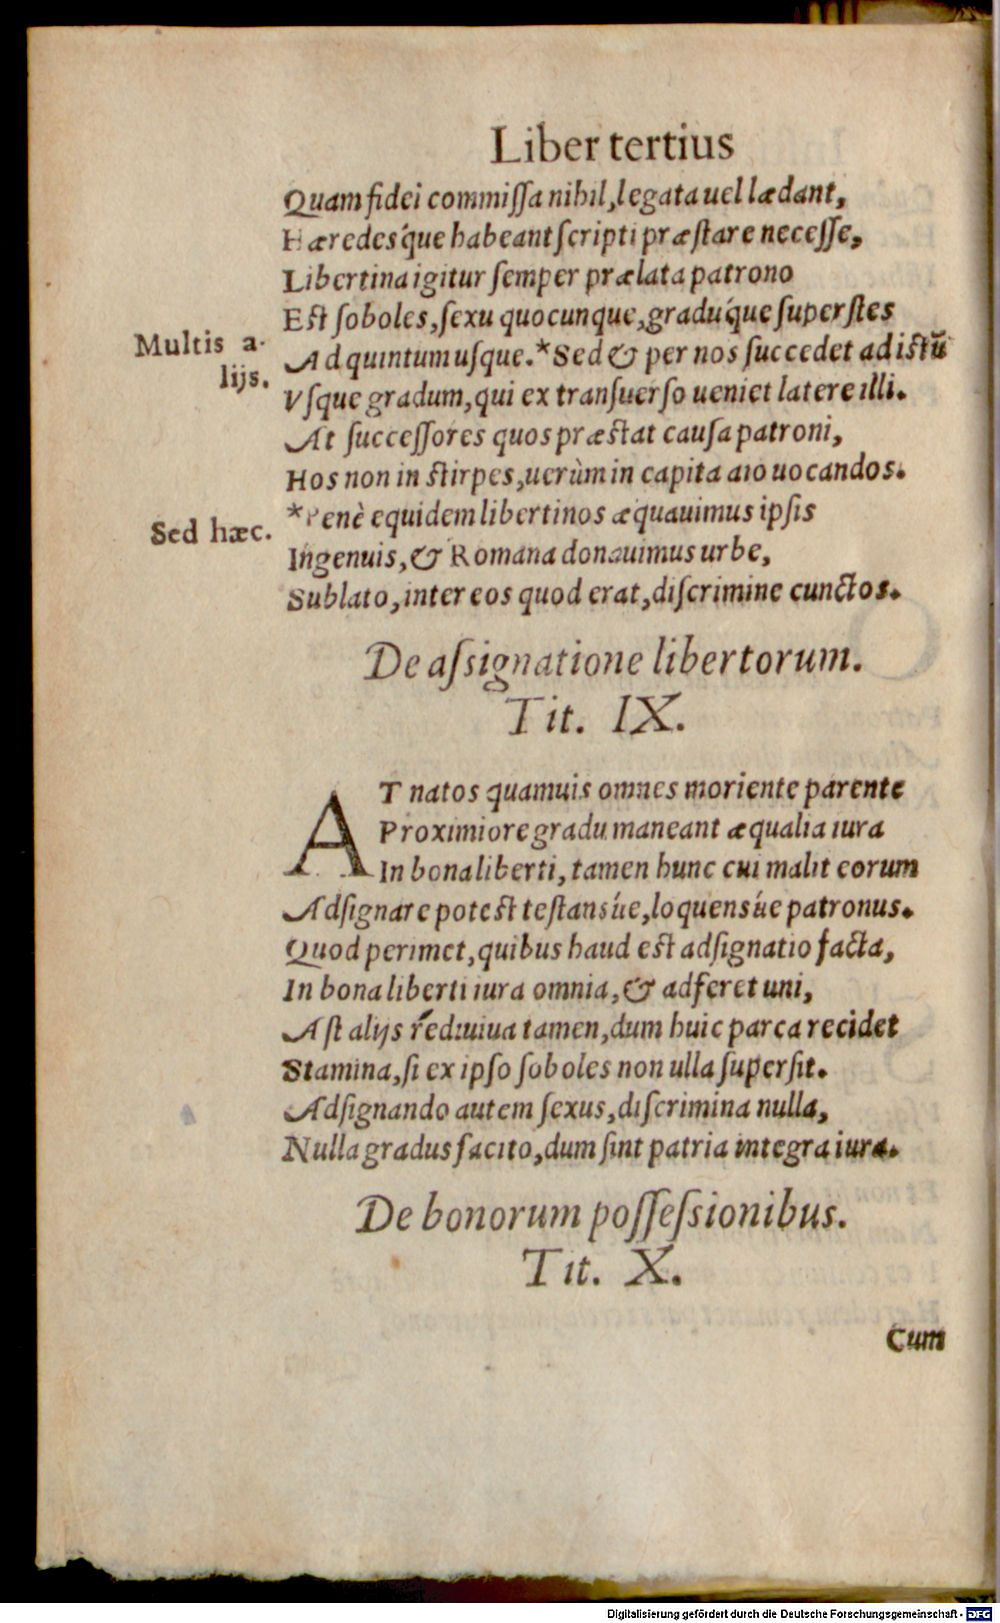 Liber tertius
Quam fidei commiſſa nihil, legata uel lædant,
Hæredes´que habeant ſcripti præſtare neceſſe,
Libertina igitur ſemper prælata patrono
Eſt ſoboles, ſexu quocunque, gradu´que ſuperſtes
Multis a-
lijs.
Ad quintum uſque.*Sed & per nos ſuccedet ad iſtũ
Vſque gradum, qui ex tranſuerſo ueniet latere illi.
At ſucceſſores quos præſtat cauſa patroni,
Hos non in ſtirpes, uerùm in capita aio uocandos.
Sed hæc.
*Penè equidem libertinos æquauimus ipſis
Ingenuis, & Romana donauimus urbe,
Sublato, inter eos quod erat, diſcrimine cunctos.
De aſsignatione libertorum.
Tit. IX.
AT natos quamuis omnes moriente parente
Proximiore gradu maneant æqualia iura
In bona liberti, tamen hunc cui malit eorum
Adſignare poteſt teſtans´ue, loquens´ue patronus.
Quod perimet, quibus haud eſt adſignatio facta,
In bona liberti iura omnia, & adferet uni,
Aſt alijs rediuiua tamen, dum huic parca recidet
Stamina, ſi ex ipſo ſoboles non ulla ſuperſit.
Adſignando autem ſexus, diſcrimina nulla,
Nulla gradus facito, dum ſint patria integra iura.
De bonorum poſſeſsionibus.
Tit. X.
Cum
Digitalisierung gefördert durch die Deutsche Forschungsgemeinschaft - DFG